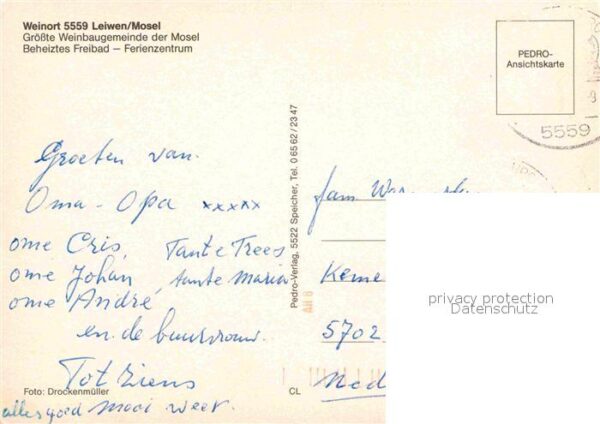 Weinort 5559 Leiwen/Mosel
Größte Weinbaugemeinde der Mosel
Beheiztes Freibad – Ferienzentrum
PEDRO-
Ansichtskarte
5559
Groeten van
Oma - Opa xxxxx
ome Cris, Tante Trees
ome Johan, tante Maria
ome André,
en de buurvrouw.
Tot Ziens
alles goed mooi weer.
Foto: Drockenmüller
CL
Pedro-Verlag, 5522 Speicher, Tel. 0 65 62 / 23 47
Fam.
Keme
5702
Ned
privacy protection
Datenschutz